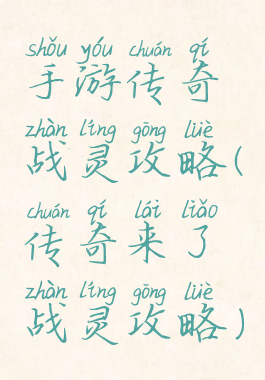 shǒu yóu chuán qí
手游传奇
zhàn líng gōng lüè
战灵攻略(
chuán qí lái liǎo
传奇来了
zhàn líng gōng lüè
战灵攻略)